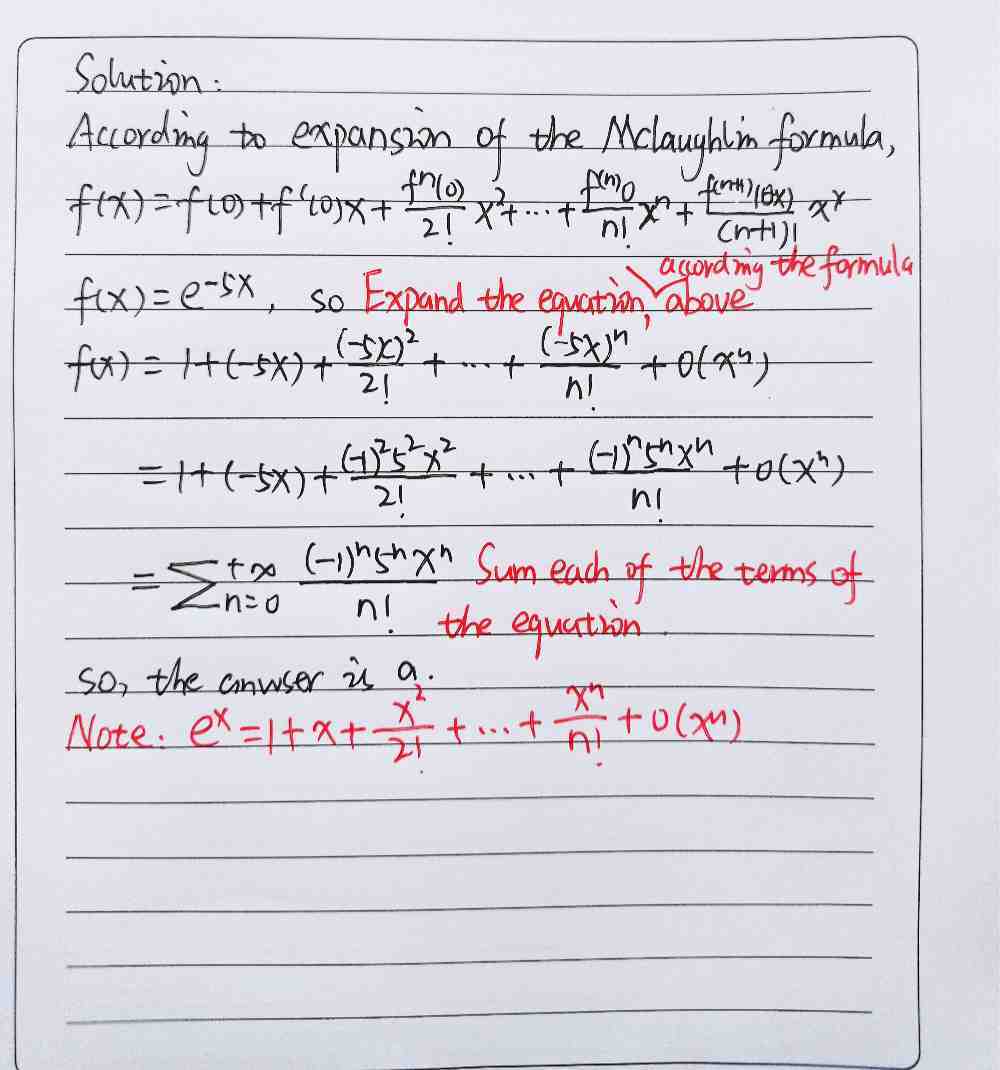 Solution:
According to expansion of the Mclaughlin formula,
f(x) = f(0) + f'(0)x + \frac{f^{n}(0)}{2!} x^2 + ... + \frac{f^{(n)}0}{n!} x^n + \frac{f^{(n+1)}(θx)}{(n+1)!} x^x
f(x) = e^{-5x}, so Expand the equation, according the formula above
f(x) = 1 + (-5x) + \frac{(-5x)^2}{2!} + ... + \frac{(-5x)^n}{n!} + 0(x^n)
= 1 + (-5x) + \frac{(-1)^2 5^2 x^2}{2!} + ... + \frac{(-1)^n 5^n x^n}{n!} + 0(x^n)
= \sum_{n=0}^{+∞} \frac{(-1)^n 5^n x^n}{n!} Sum each of the terms of
the equation.
so, the anwser is a.
Note: e^x = 1 + x + \frac{x^2}{2!} + ... + \frac{x^n}{n!} + 0(x^n)